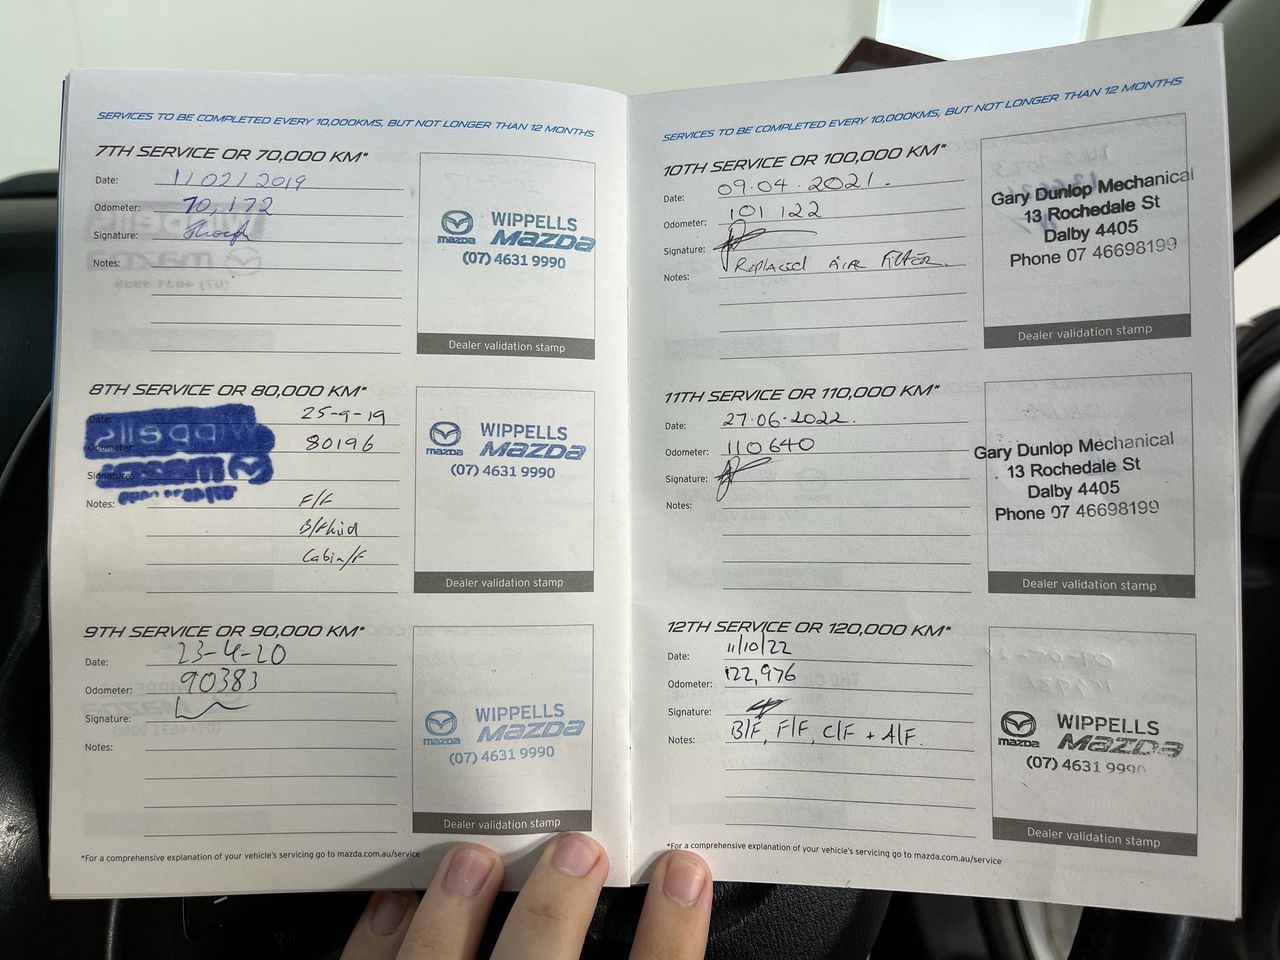 SERVICES TO BE COMPLETED EVERY 10,000KMS, BUT NOT LONGER THAN 12 MONTHS
7TH SERVICE OR 70,000 KM*
Date: 11 02 / 2019
Odometer: 70,172
Signature:
Notes:
mazda
WIPPELLS
mazda
(07) 4631 9990
Dealer validation stamp
8TH SERVICE OR 80,000 KM*
Date: 25-9-19
Odometer: 80196
Signature:
Notes: F/F
B/Fluid
Cabin/F
mazda
WIPPELLS
mazda
(07) 4631 9990
Dealer validation stamp
9TH SERVICE OR 90,000 KM*
Date: 23-4-20
Odometer: 90383
Signature:
Notes:
mazda
WIPPELLS
mazda
(07) 4631 9990
Dealer validation stamp
*For a comprehensive explanation of your vehicle's servicing go to mazda.com.au/service
SERVICES TO BE COMPLETED EVERY 10,000KMS, BUT NOT LONGER THAN 12 MONTHS
10TH SERVICE OR 100,000 KM*
Date: 09.04.2021.
Odometer: 101 122
Signature:
Notes: Replaced AIR Filter.
Gary Dunlop Mechanical
13 Rochedale St
Dalby 4405
Phone 07 46698199
Dealer validation stamp
11TH SERVICE OR 110,000 KM*
Date: 27.06.2022.
Odometer: 110640
Signature:
Notes:
Gary Dunlop Mechanical
13 Rochedale St
Dalby 4405
Phone 07 46698199
Dealer validation stamp
12TH SERVICE OR 120,000 KM*
Date: 11/10/22
Odometer: 122,976
Signature:
Notes: B/F, F/F, C/F + A/F.
mazda
WIPPELLS
mazda
(07) 4631 9990
Dealer validation stamp
*For a comprehensive explanation of your vehicle's servicing go to mazda.com.au/service